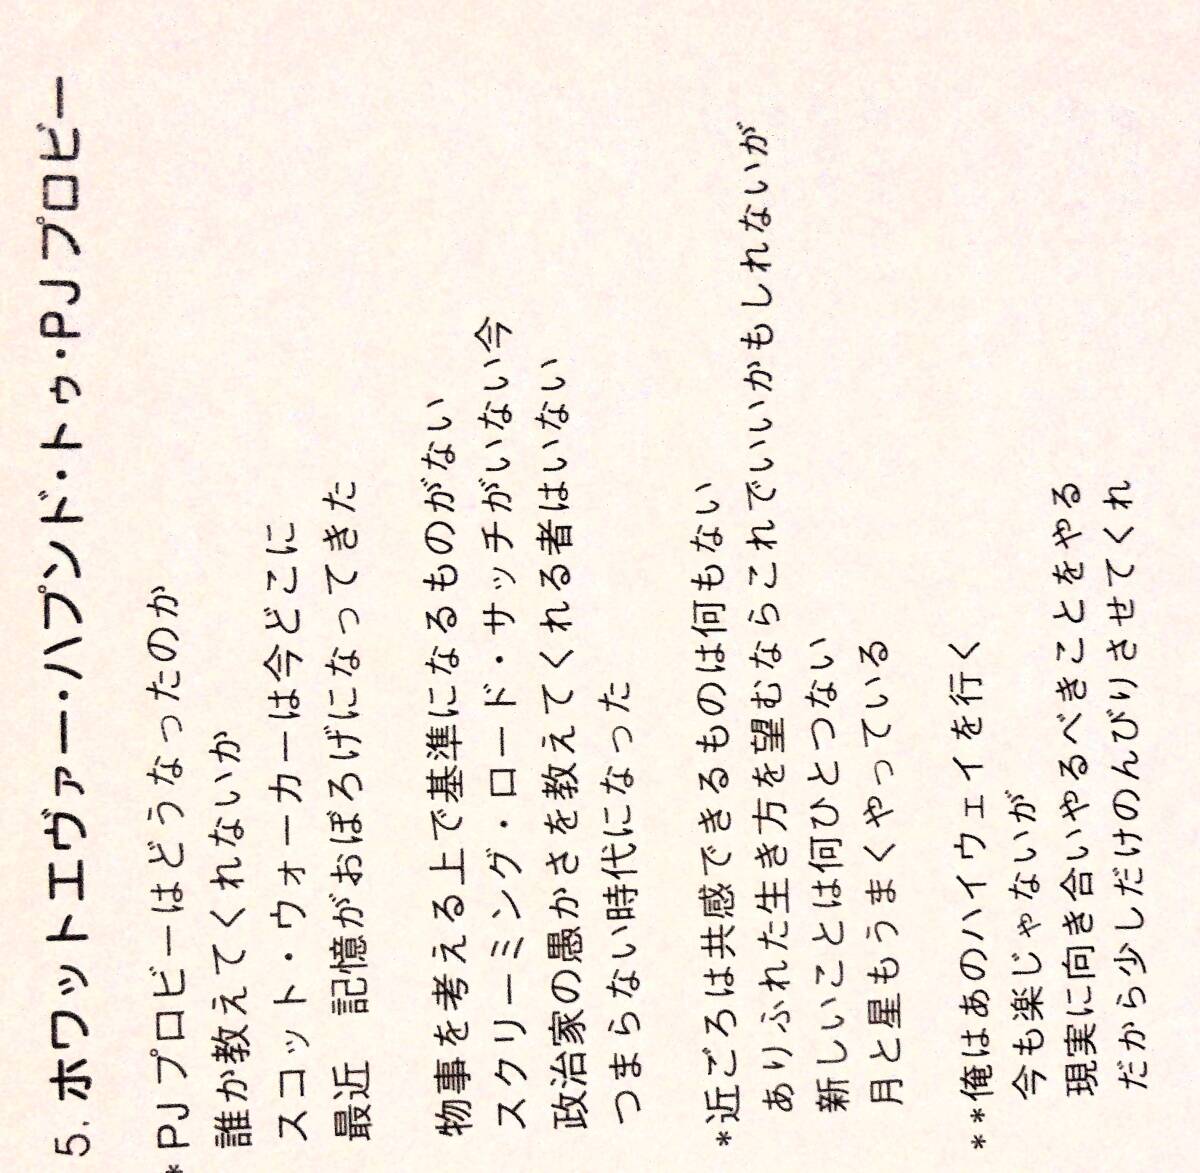 5. ホワットエヴァー・ハプンド・トゥ・PJプロビー
*PJプロビーはどうなったのか
誰か教えてくれないか
スコット・ウォーカーは今どこに
最近　記憶がおぼろげになってきた
物事を考える上で基準になるものがない
スクリーミング・ロード・サッチがいない今
政治家の愚かさを教えてくれる者はいない
つまらない時代になった
*近ごろは共感できるものは何もない
ありふれた生き方を望むならこれでいいかもしれないが
新しいことは何ひとつない
月と星もうまくやっている
**俺はあのハイウェイを行く
今も楽じゃないが
現実に向き合いやるべきことをやる
だから少しだけのんびりさせてくれ